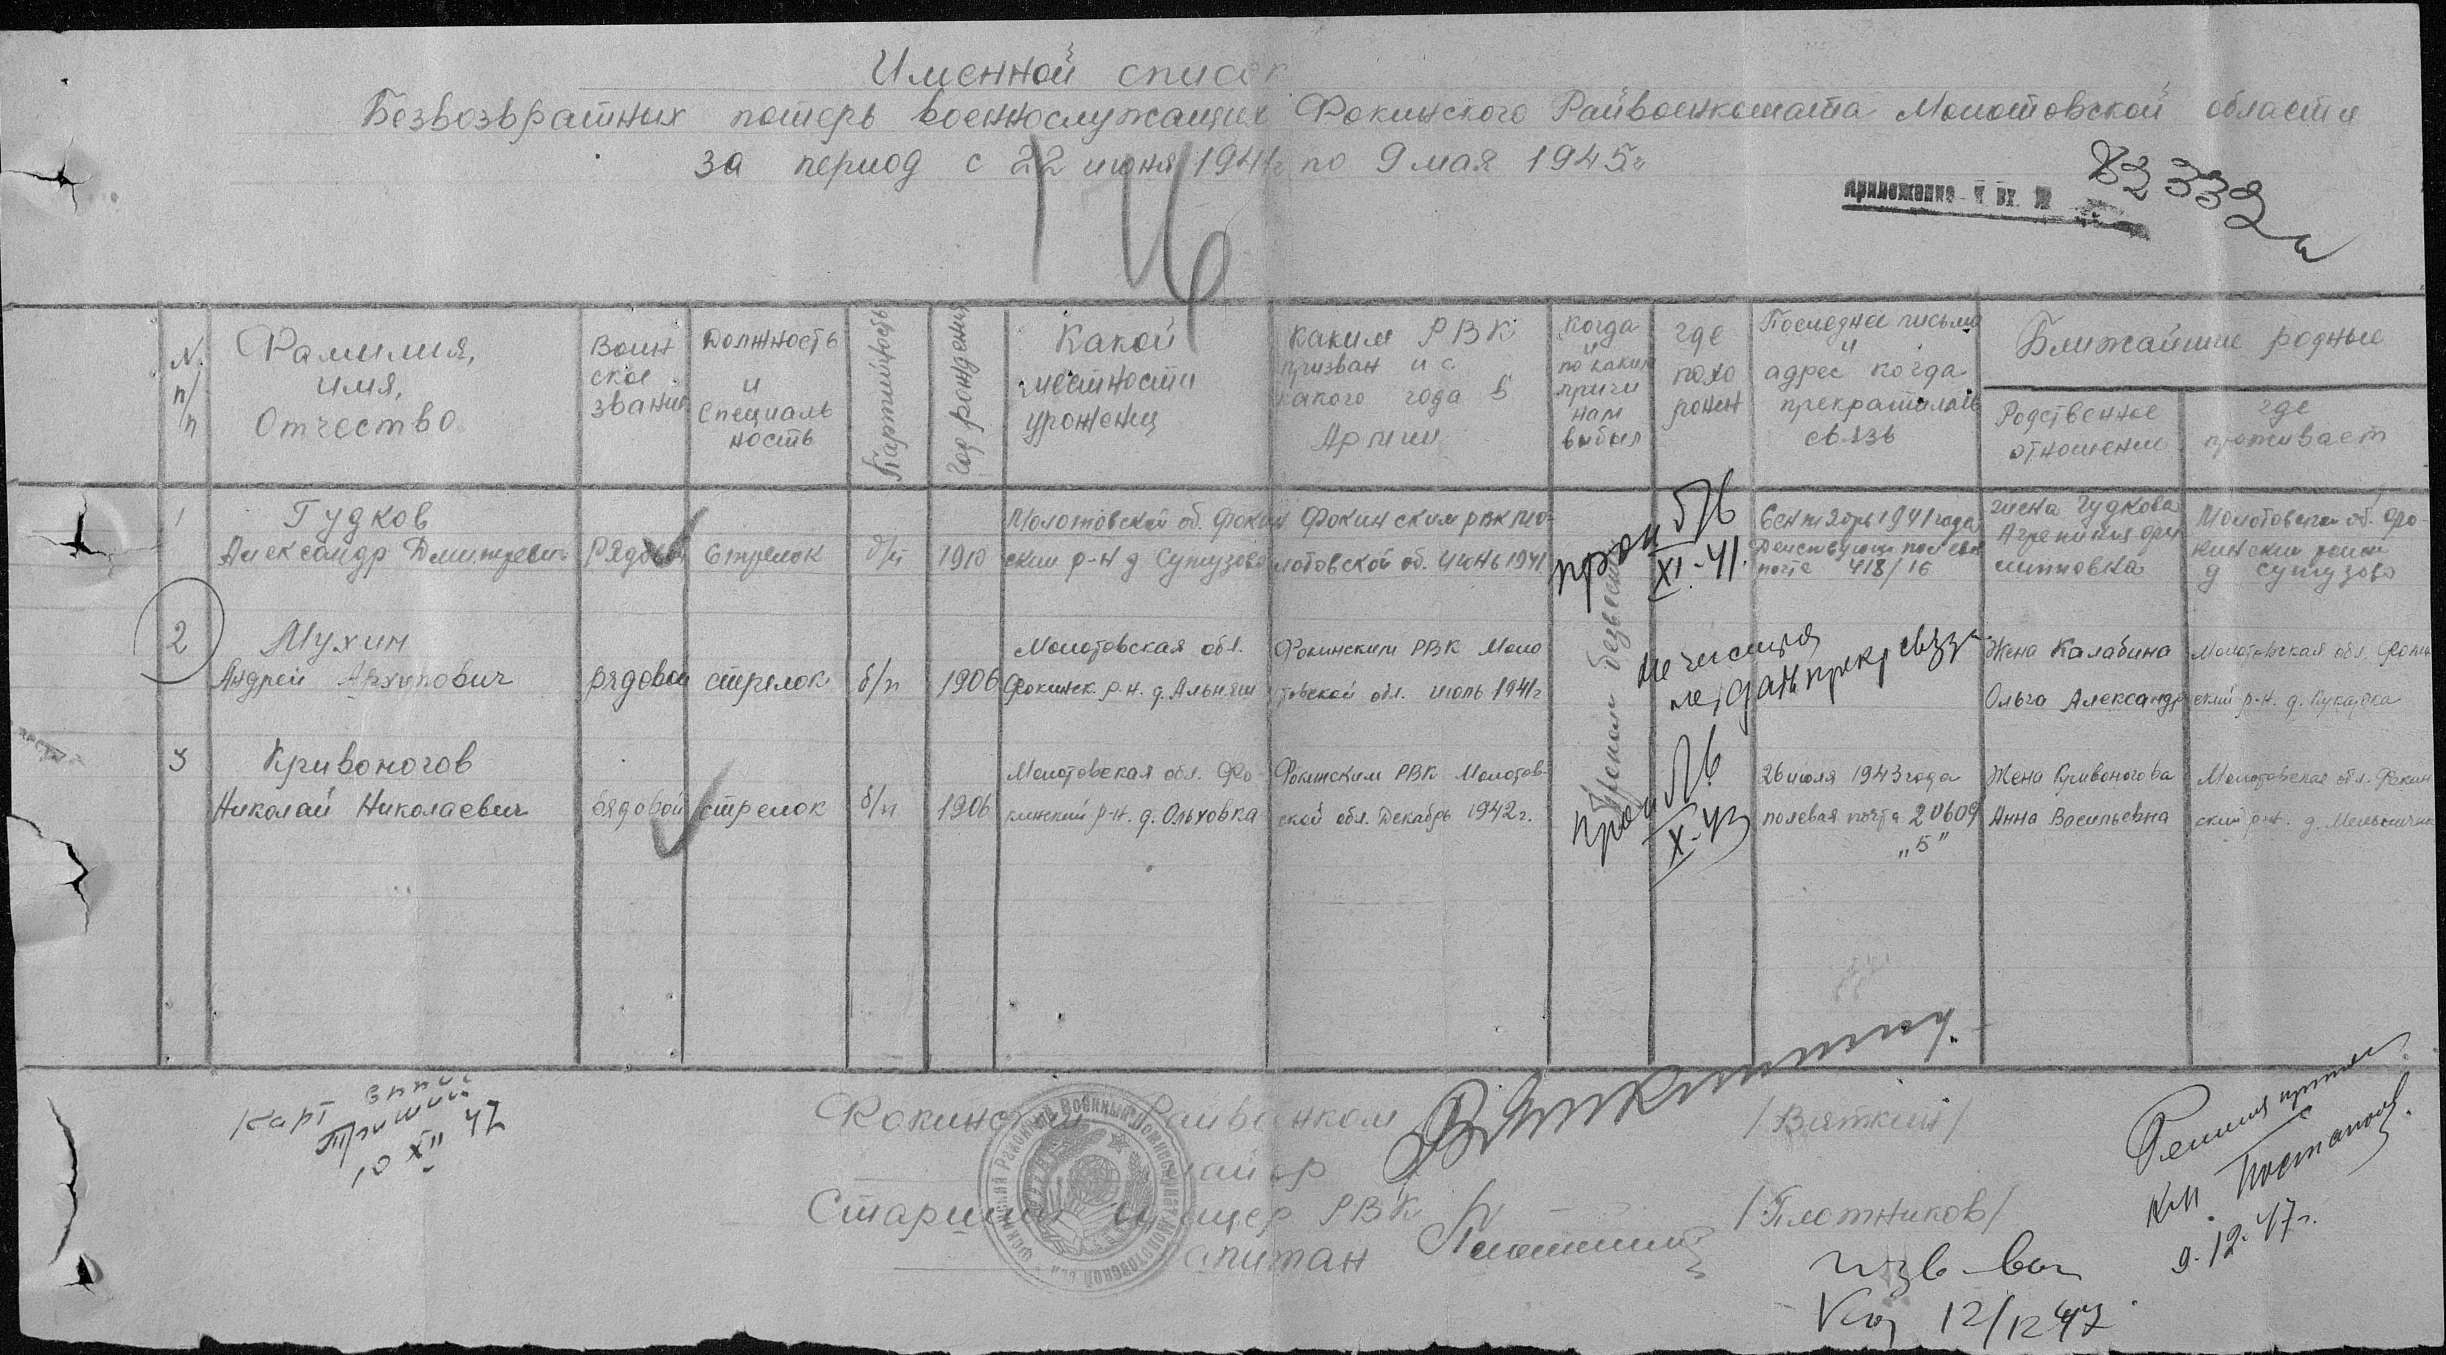 Именной список
Безвозвратных потерь военнослужащих Фокинского Райвоенкомата Молотовской области
за период с 22 июня 1941г по 9 мая 1945г
16
Приложение к вх. №
82332
N п/п
Фамилия, имя, Отчество
Воинское звание
Должность и специальность
Партийность
Год рождения
Какой местности урожениц
Каким РВК призван и с какого года в Армии
Когда и по каким причинам выбыл
где похоронен
Последнее письмо и адрес когда прекратилась связь
Ближайшие родные
Родственное отношение
где проживает
1
Гудков
Александр Дмитревич
Рядовой
Стрелок
б/п
1910
Молотовской об. Фокинский р-н д Сутузово
Фокинским рвк Молотовской об. Июнь 1941
проп
XI-41.
Сентябрь 1941 года
почта 418/16
жена Гудкова
Молотовской об. Фо-
д Сутузово
2
Мухин
Андрей Архипович
рядовой
стрелок
б/п
1906
Молотовская обл.
Фокинск. р-н. д. Альняш
Фокинским РВК Молотовской обл. июль 1941г
не числится
нет дан прекр связи
Жена Калабина
Ольга Александр
Молотовская обл. Фокинский р-н. д.
3
Кривоногов
Николай Николаевич
рядовой
стрелок
б/п
1906
Молотовская обл. Фокинский р-н. д. Ольховка
Фокинским РВК Молотовской обл. Декабрь 1942г.
Пропал безвести
X-43
26 июля 1943 года
полевая почта 20609
"Б"
Жена Кривоногова
Анна Васильевна
Молотовская обл. Фокинский р-н. д.
Фокинский Райвоенком
майор
/Вяткин/
Старший РВК
капитан
/Плотников/
Карт
10 XII 47
9.12.47г.
12/12 47